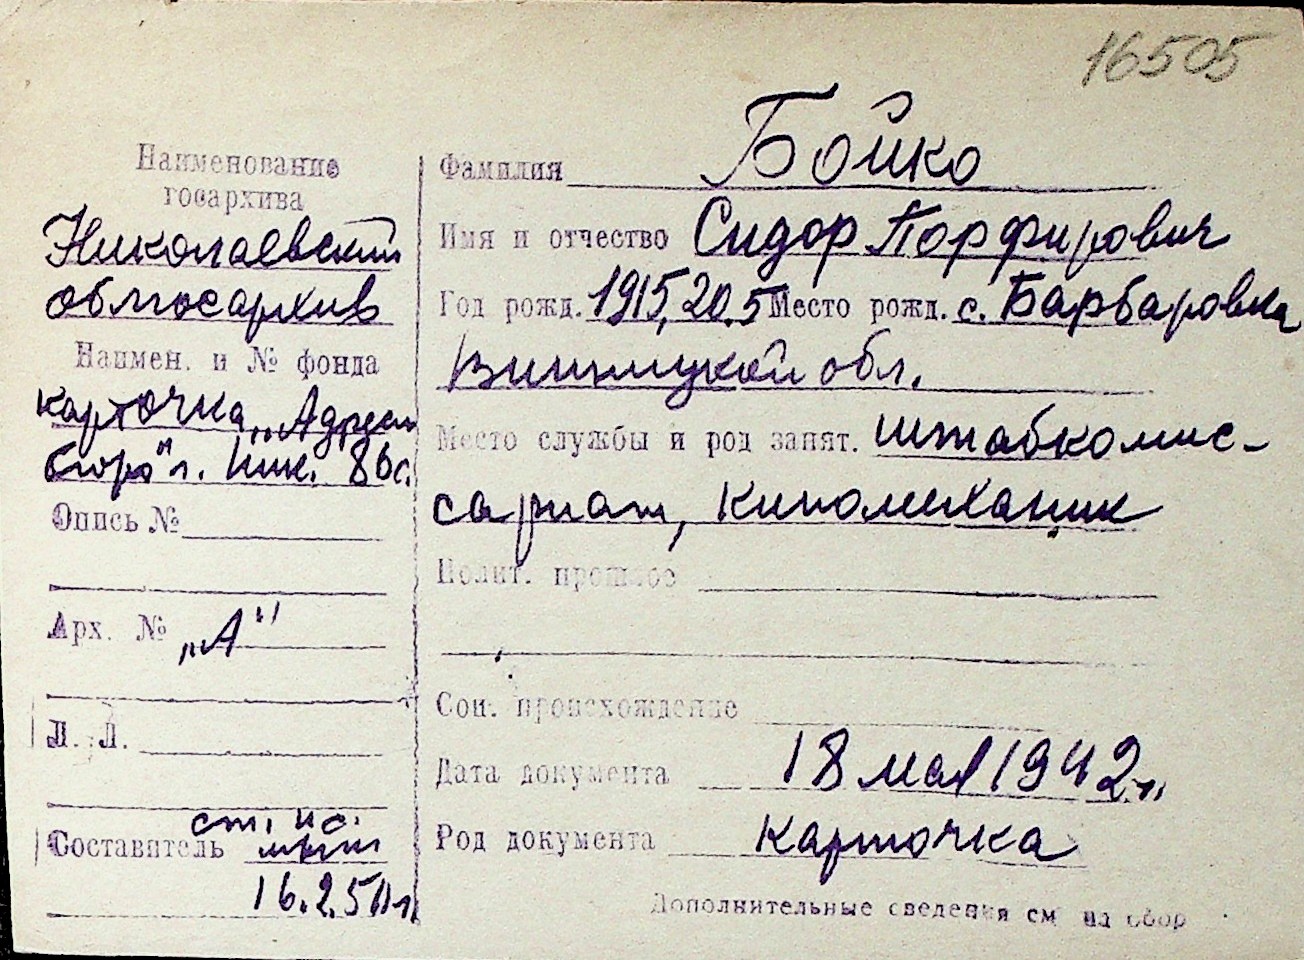 16505
Наименование
госархива
Николаевский
облгосархив
Наимен. и № фонда
карточка „Адресн
бюро" г. Ник.
Опись №
Арх. № „А"
Л. Л.
ст. ис.
Составитель
16.2.50г.
Фамилия Бойко
Имя и отчество Сидор Порфирович
Год рожд. 1915, 20.5 Место рожд. с. Барбаровка
Винницкой обл.
Место службы и род занят. штабкомис-
сариат, киномеханик
Полит. прошлое
Соц. происхождение
Дата документа 18 мая 1942 г.
Род документа карточка
Дополнительные сведения см на обор